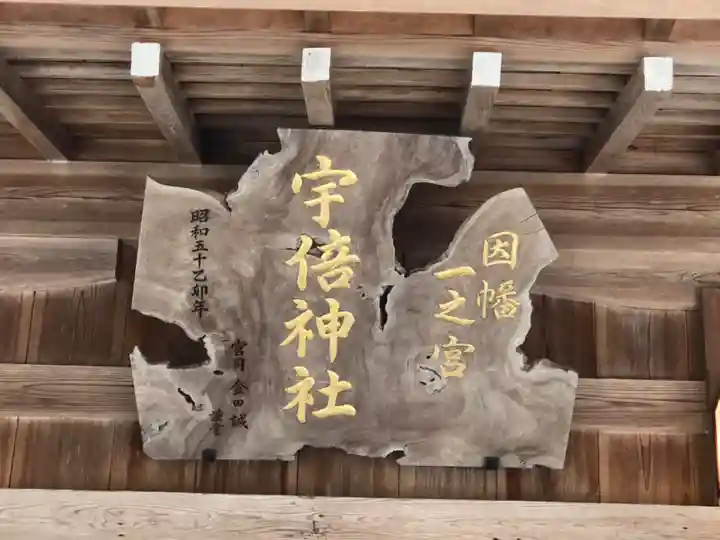 因幡
一之宮
宇倍神社
昭和五十乙卯年
宮司 金田誠